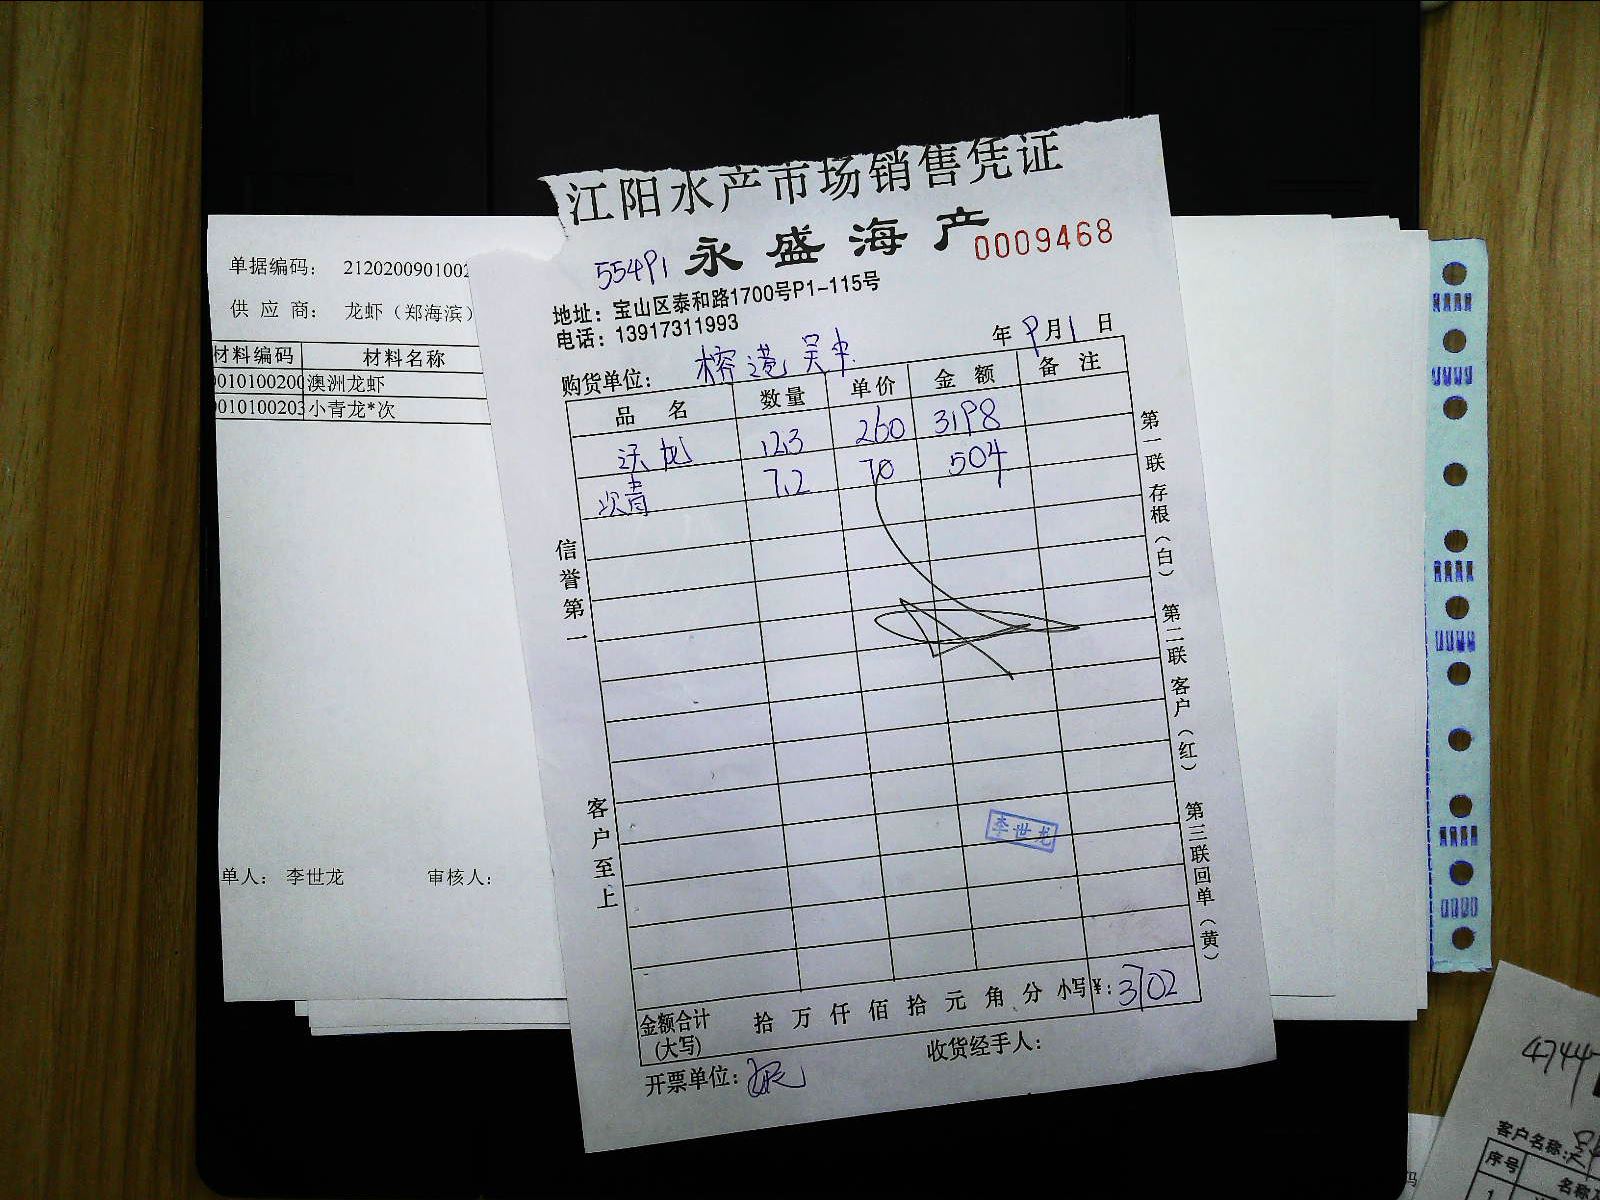 江阳水产市场销售凭证
永盛海产
0009468
55491
地址：宝山区泰和路1700号P1-115号
电话：13917311993
年 9月1日
购货单位： 榕港吴中
品 名 数量 单价 金 额 备 注
沃龙 12.3 260 3198
次青 7.2 70 504
信誉第一
客户至上
第一联存根（白） 第二联客户（红） 第三联回单（黄）
李世龙
金额合计(大写) 拾 万 仟 佰 拾 元 角 分 小写¥: 3702
开票单位： 收货经手人：
单据编码： 2120200901002
供 应 商： 龙虾（郑海滨）
材料编码 材料名称
010100200 澳洲龙虾
010100203 小青龙*次
单人： 李世龙 审核人：
4744
客户名称：吴
序号 名称
1
码